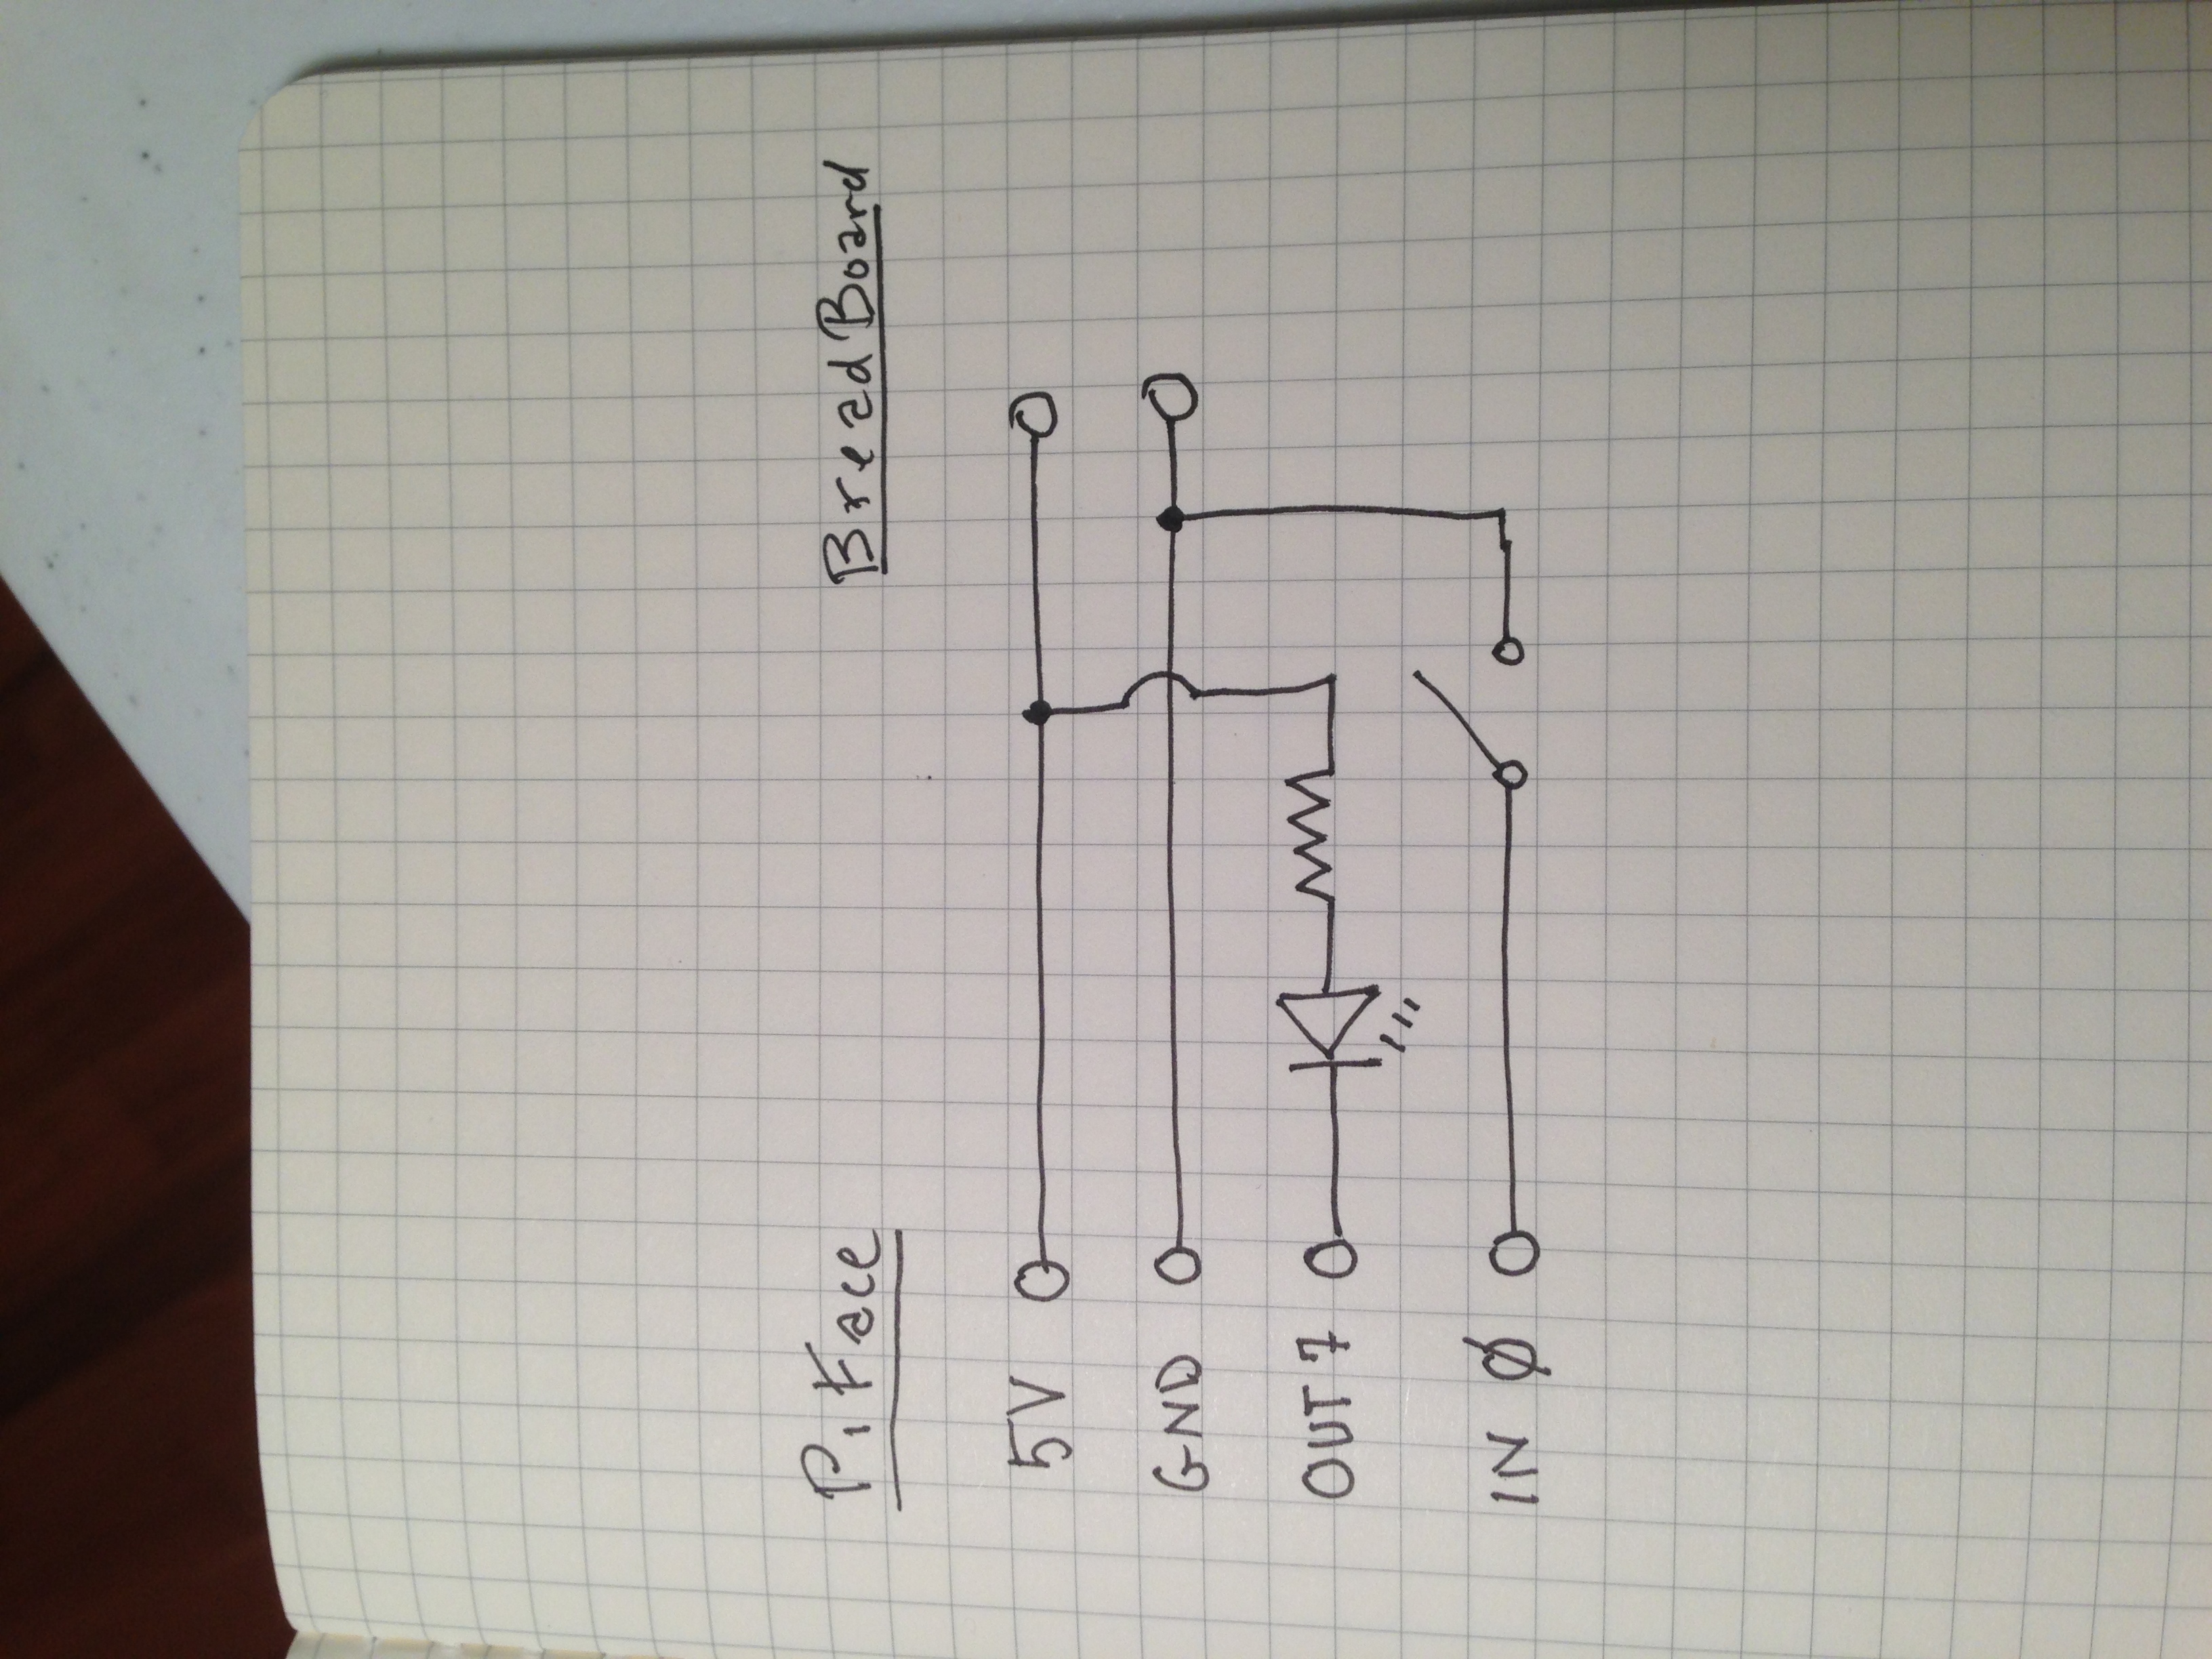 Pi Face
Bread Board
5V
GND
OUT 7
IN Ø